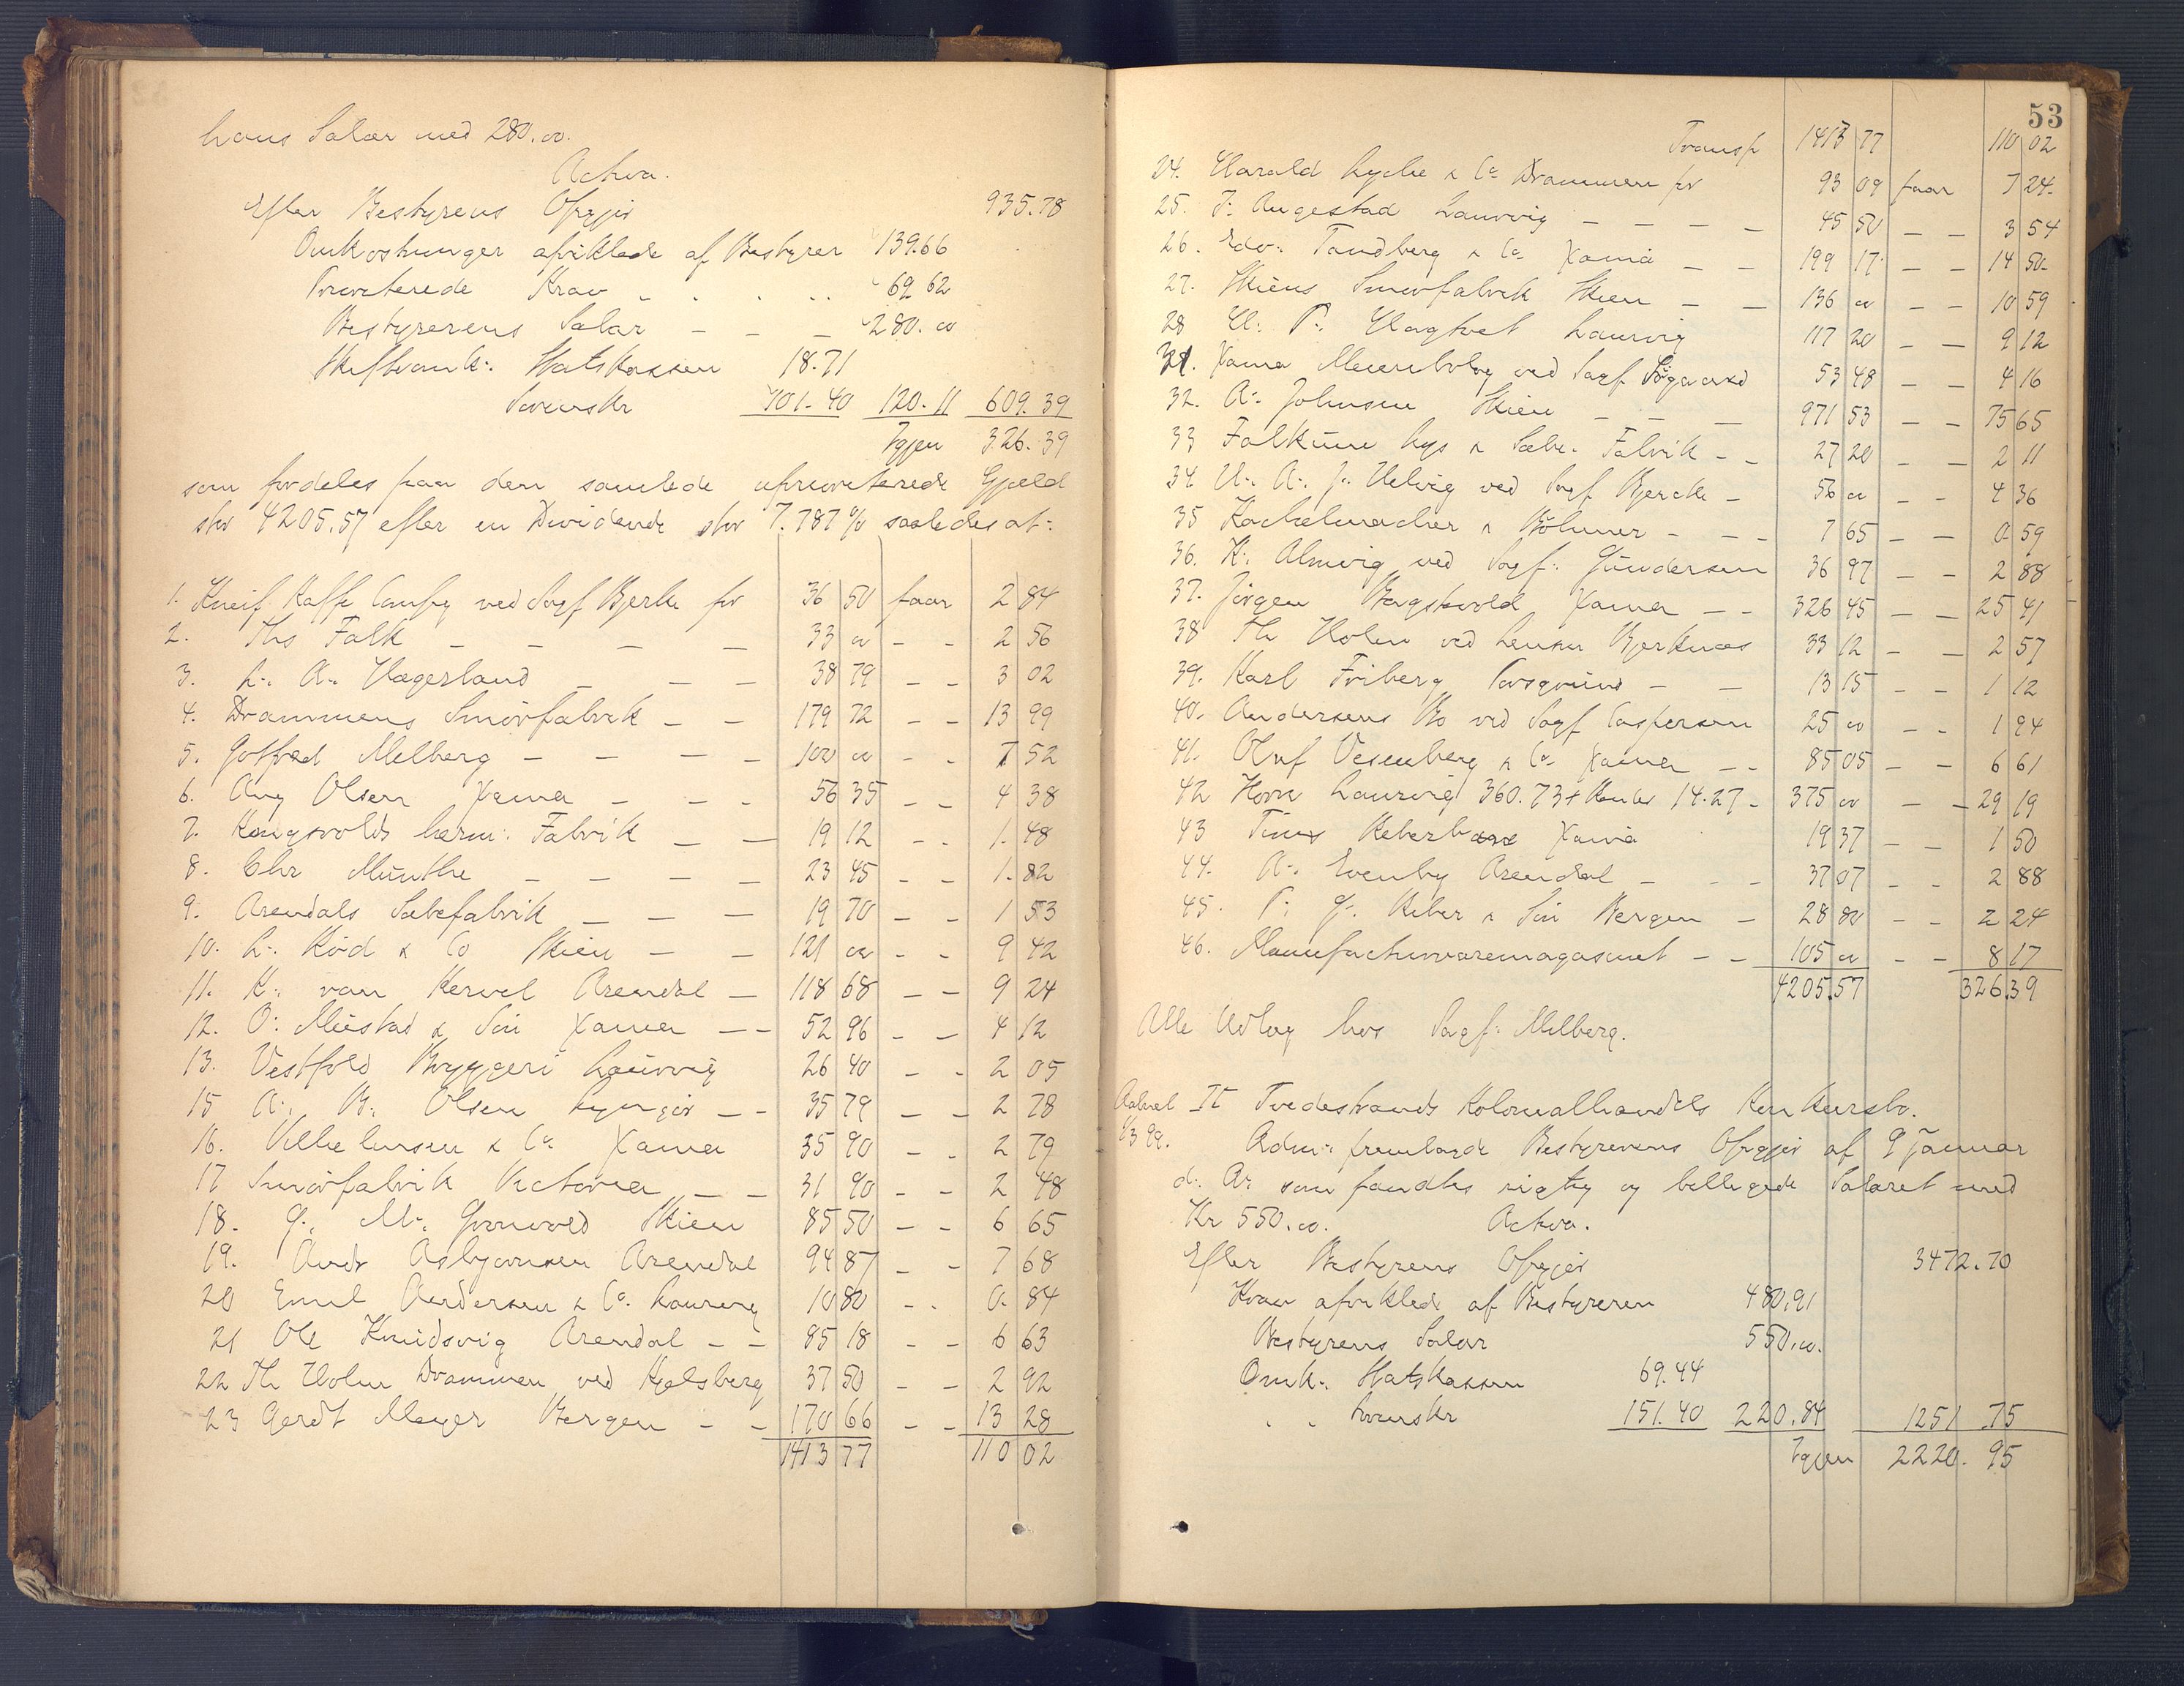 hans Salær med 280.00.
Activa.
Efter Bestyrens Opgjør 935.78
Omkostninger afviklede af Bestyrer 139.66
Prioriterede Krav 69 62
Bestyrerens Salær 280.00
Skifteomk: Statskassen 18.71
Sorenskr 101.40 120.11 609.39
Igjen 326.39
som fordeles paa den samlede uprioriterede Gjæld
stor 4205.57 efter en Dividende stor 7.787 % saaledes at:
1. Kneif Kaffe Compg ved Sagf Bjerke for 36 50 faar 2 84
2. Ths Falk — — — — 33 00 - - 2 56
3. L. A. Hægerland — — — 38 79 - - 3 02
4. Drammens Smørfabrik — — 179 72 - - 13 99
5. Gotfred Melberg — — — — 100 00 - - 7 52
6. Aug Olsen Xania — — — 56 35 - - 4 38
7. Kongsvolds herm: Fabrik — — 19 12 - - 1.48
8. Chr Münthe — — — — 23 45 - - 1.82
9. Arendals Sæbefabrik — — — 19 70 - - 1 53
10. L. Kiød & Co Skien — — 121 00 - - 9 42
11. K. van Kervel Arendal — 118 68 - - 9 24
12. O: Mustad & Søn Xania — — 52 96 - - 4 12
13. Vestfold Bryggeri Laurvig 26 40 - - 2 05
15 A. B. Olsen Lyngør — — 35 79 - - 2 78
16. Vilhelmsen & Co Xania 35 90 - - 2 79
17 Smørfabrik Victoria — — 31 90 - - 2 48
18. G. M. Gromvold Skien 85 50 - - 6 65
19. Andr Asbjørnsen Arendal 94 87 - - 7 68
20 Emil Andersen & Co. Laurvig 10 80 - - 0. 84
21 Ole Knudsvig Arendal — — 85 18 - - 6 63
22 Th Holm Drammen ved Kjelsberg 37 50 - - 2 92
23 Gerdt Meyer Bergen — — 170 66 - - 13 28
1413 77 110 02
53
Transp 1413 77 110 02
24. Harald Lyche & Co Drammen for 93 09 faar 7 24
25. J. Augestad Laurvig — — — — 45 50 - - 3 54
26. Edv: Tandberg & Co Xania — — 199 17 - - 14 50
27. Skiens Smørfabrik Skien — — 136 00 - - 10 59
28 H. P. Hagtvet Laurvig 117 20 - - 9 12
31. Xania Meieribolag ved Sagf Sögaard 53 48 - - 4 16
32. A. Johnsen Skien — — — 971 53 - - 75 65
33 Falkum Lys & Sæbe. Fabrik - - 27 20 - - 2 11
34. U. A. J. Helvig ved Sagf Bjercke - 56 00 - - 4 36
35 Kachelmacher & Böhmer - - - 7 65 - - 0 59
36. K. Almvig ved Sagf: Gundersen 36 97 - - 2 88
37. Jörgen Bergskvold Xania - - 326 45 - - 25 41
38 Th Holm ved Lensm Bjerknæs 33 12 - - 2 57
39. Karl Friberg Porsgrund — — 13 15 - - 1 12
40. Andersens Bo ved Sagf Caspersen 25 00 - - 1 94
41. Oluf Vesenberg & Co Xania - - 85 05 - - 6 61
42 Horn Laurvig 360.73 + Renter 14.27 - 375 00 - - 29 19
43 Xania 19 37 - - 1 50
44. A. Evenby Arendal - - - 37 07 - - 2 88
45. P. G. Rieber & Søn Bergen - 28 80 - - 2 24
46. Manufacturvaremagasinet - - 105 00 - - 8 17
4205.57 326.39
Alle Udlæg hos Sagf: Melberg.
It Tvedestrands Kolonialhandels Konkursbo.
Adm: fremlagde Bestyrerens Opgjør af 9 Januar
d. A. som fandtes rigtig og billigede Salæret med
Kr 550.00. Activa.
Efter Bestyrens Opgjør 3472.70
Krav afviklede af Bestyreren 480.91
Bestyrens Salær 550.00.
Omk: Statskassen 69.44
" " Sorenskr 151.40 220.84 1251.75
Igjen 2220.95